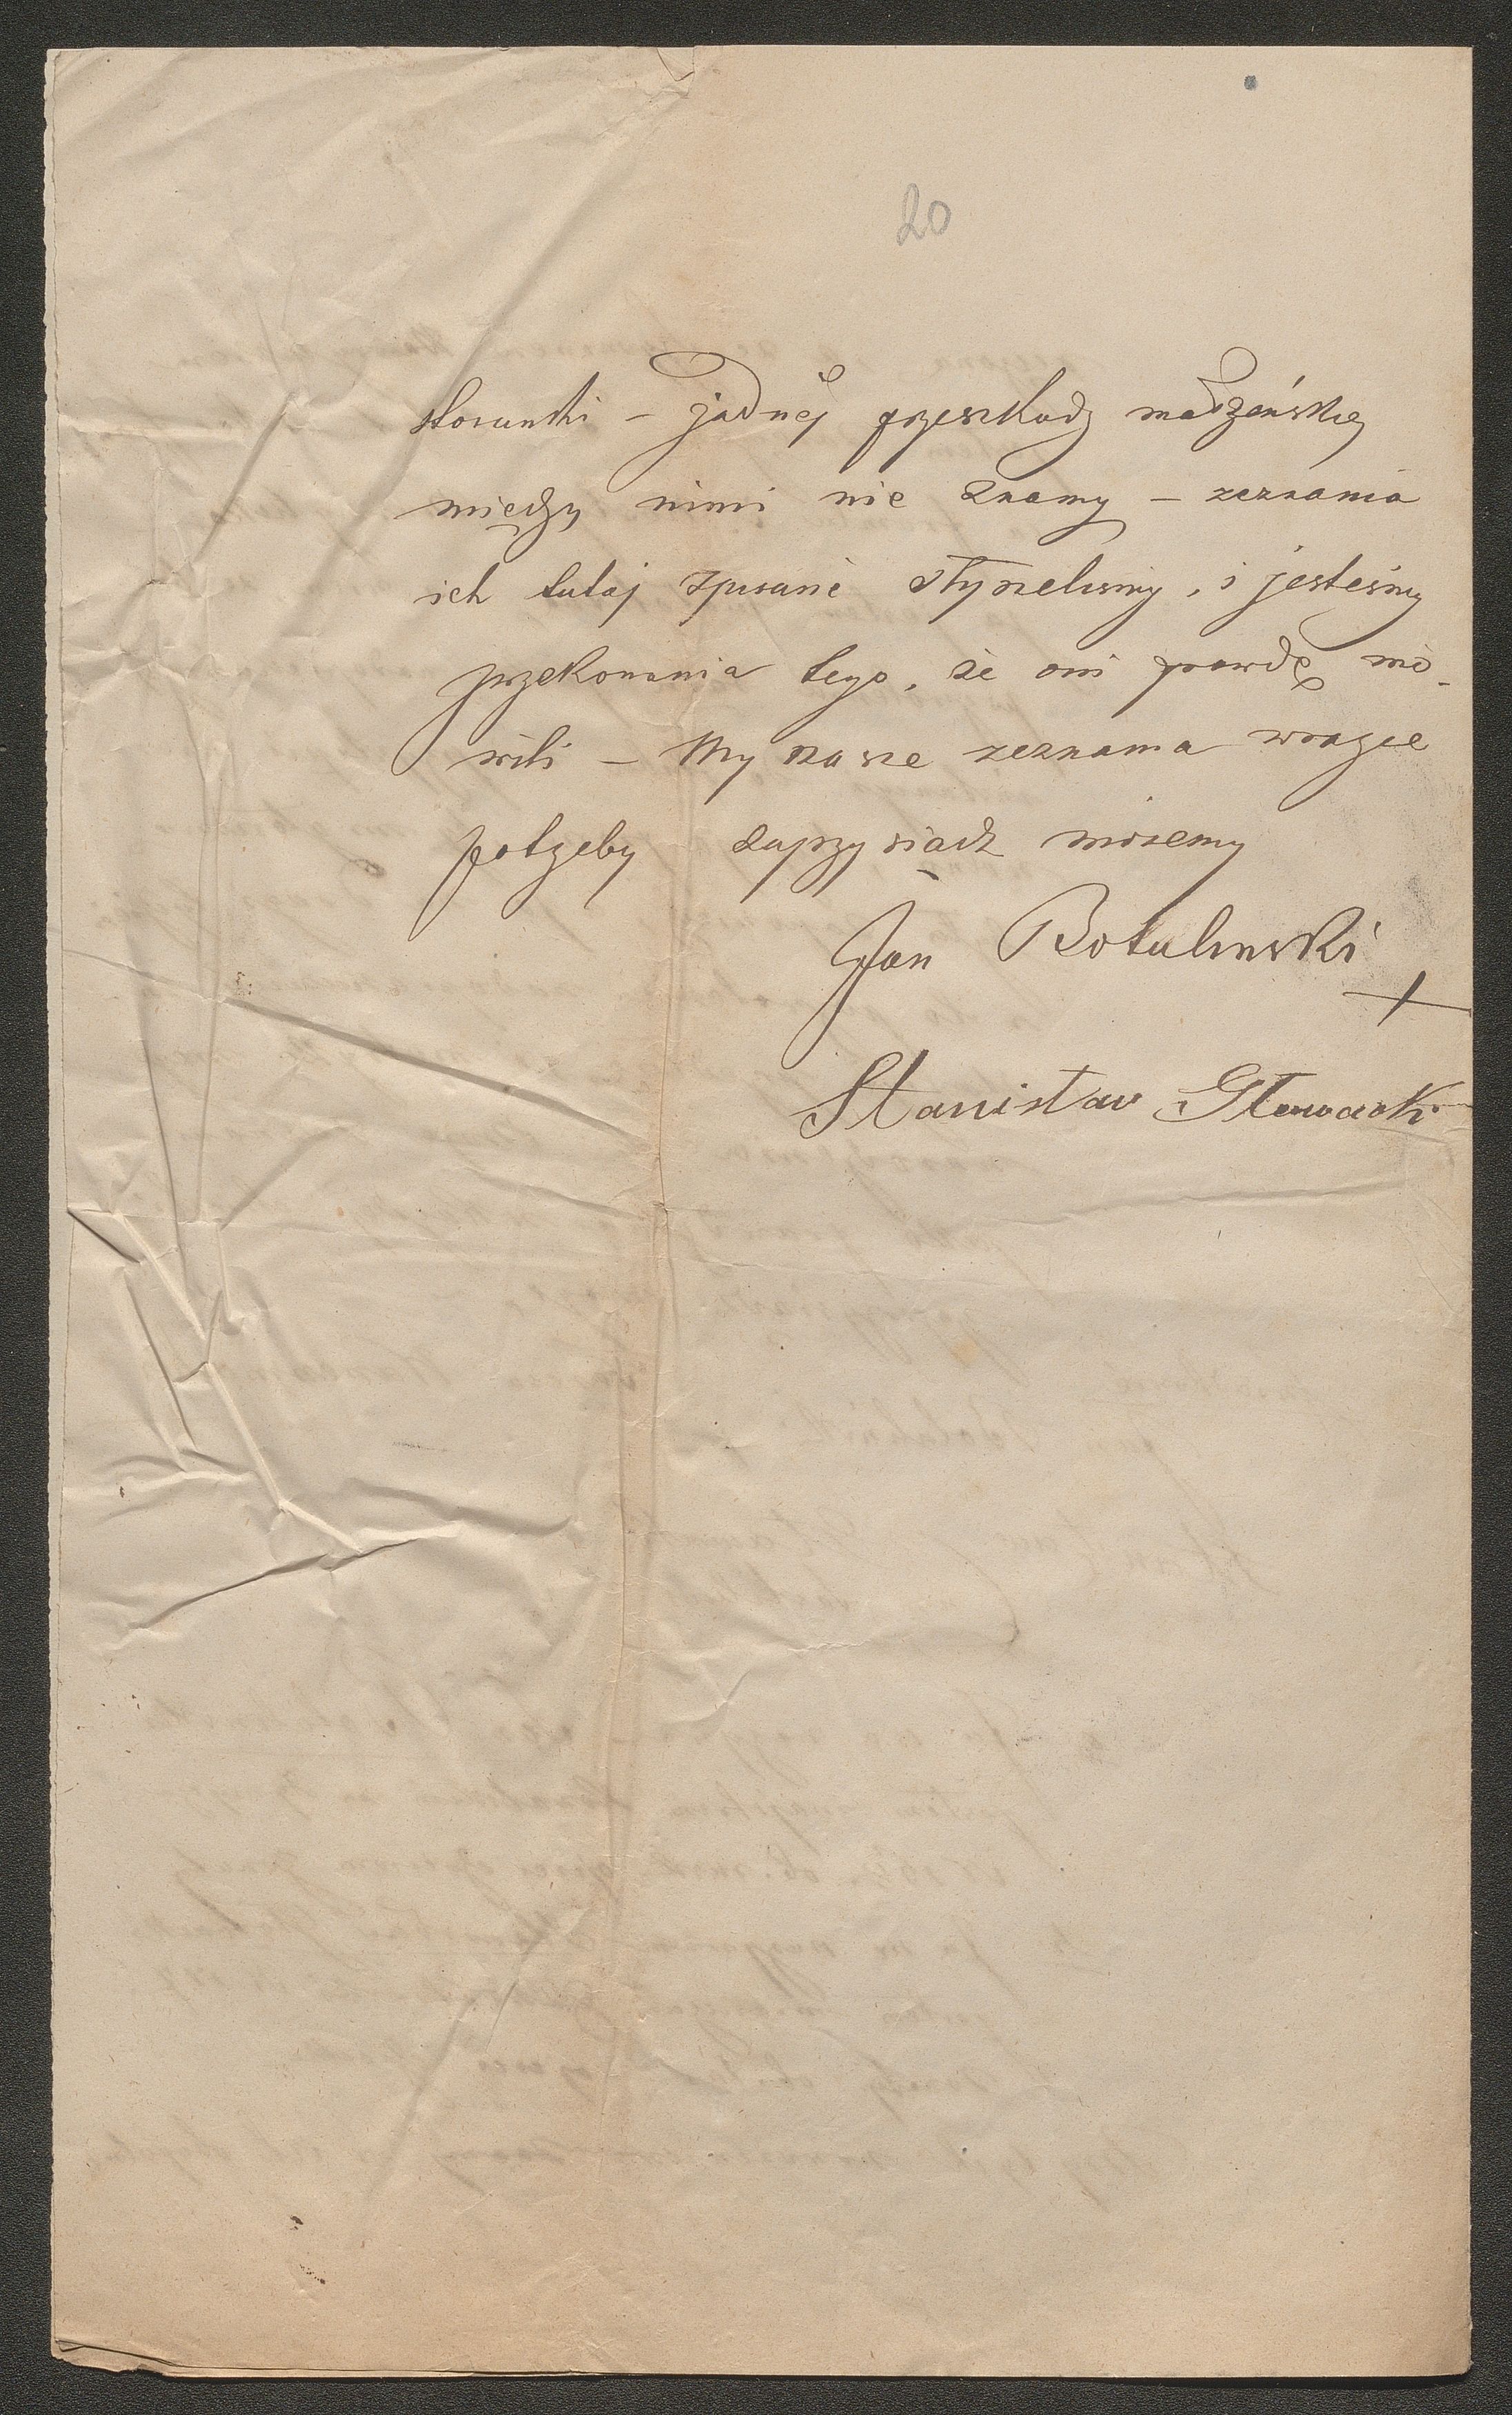 20
stosunki – żadnej przeszkody małżeńskiej
między nimi nie znamy – zeznania
ich tutaj spisane słyszeliśmy, i jesteśmy
przekonania tego, że oni prawdę mó-
wili – My nasze zeznania wrazie
potrzeby zaprzysiądz możemy
Jan Botulinski
+
Stanisław Głowacki